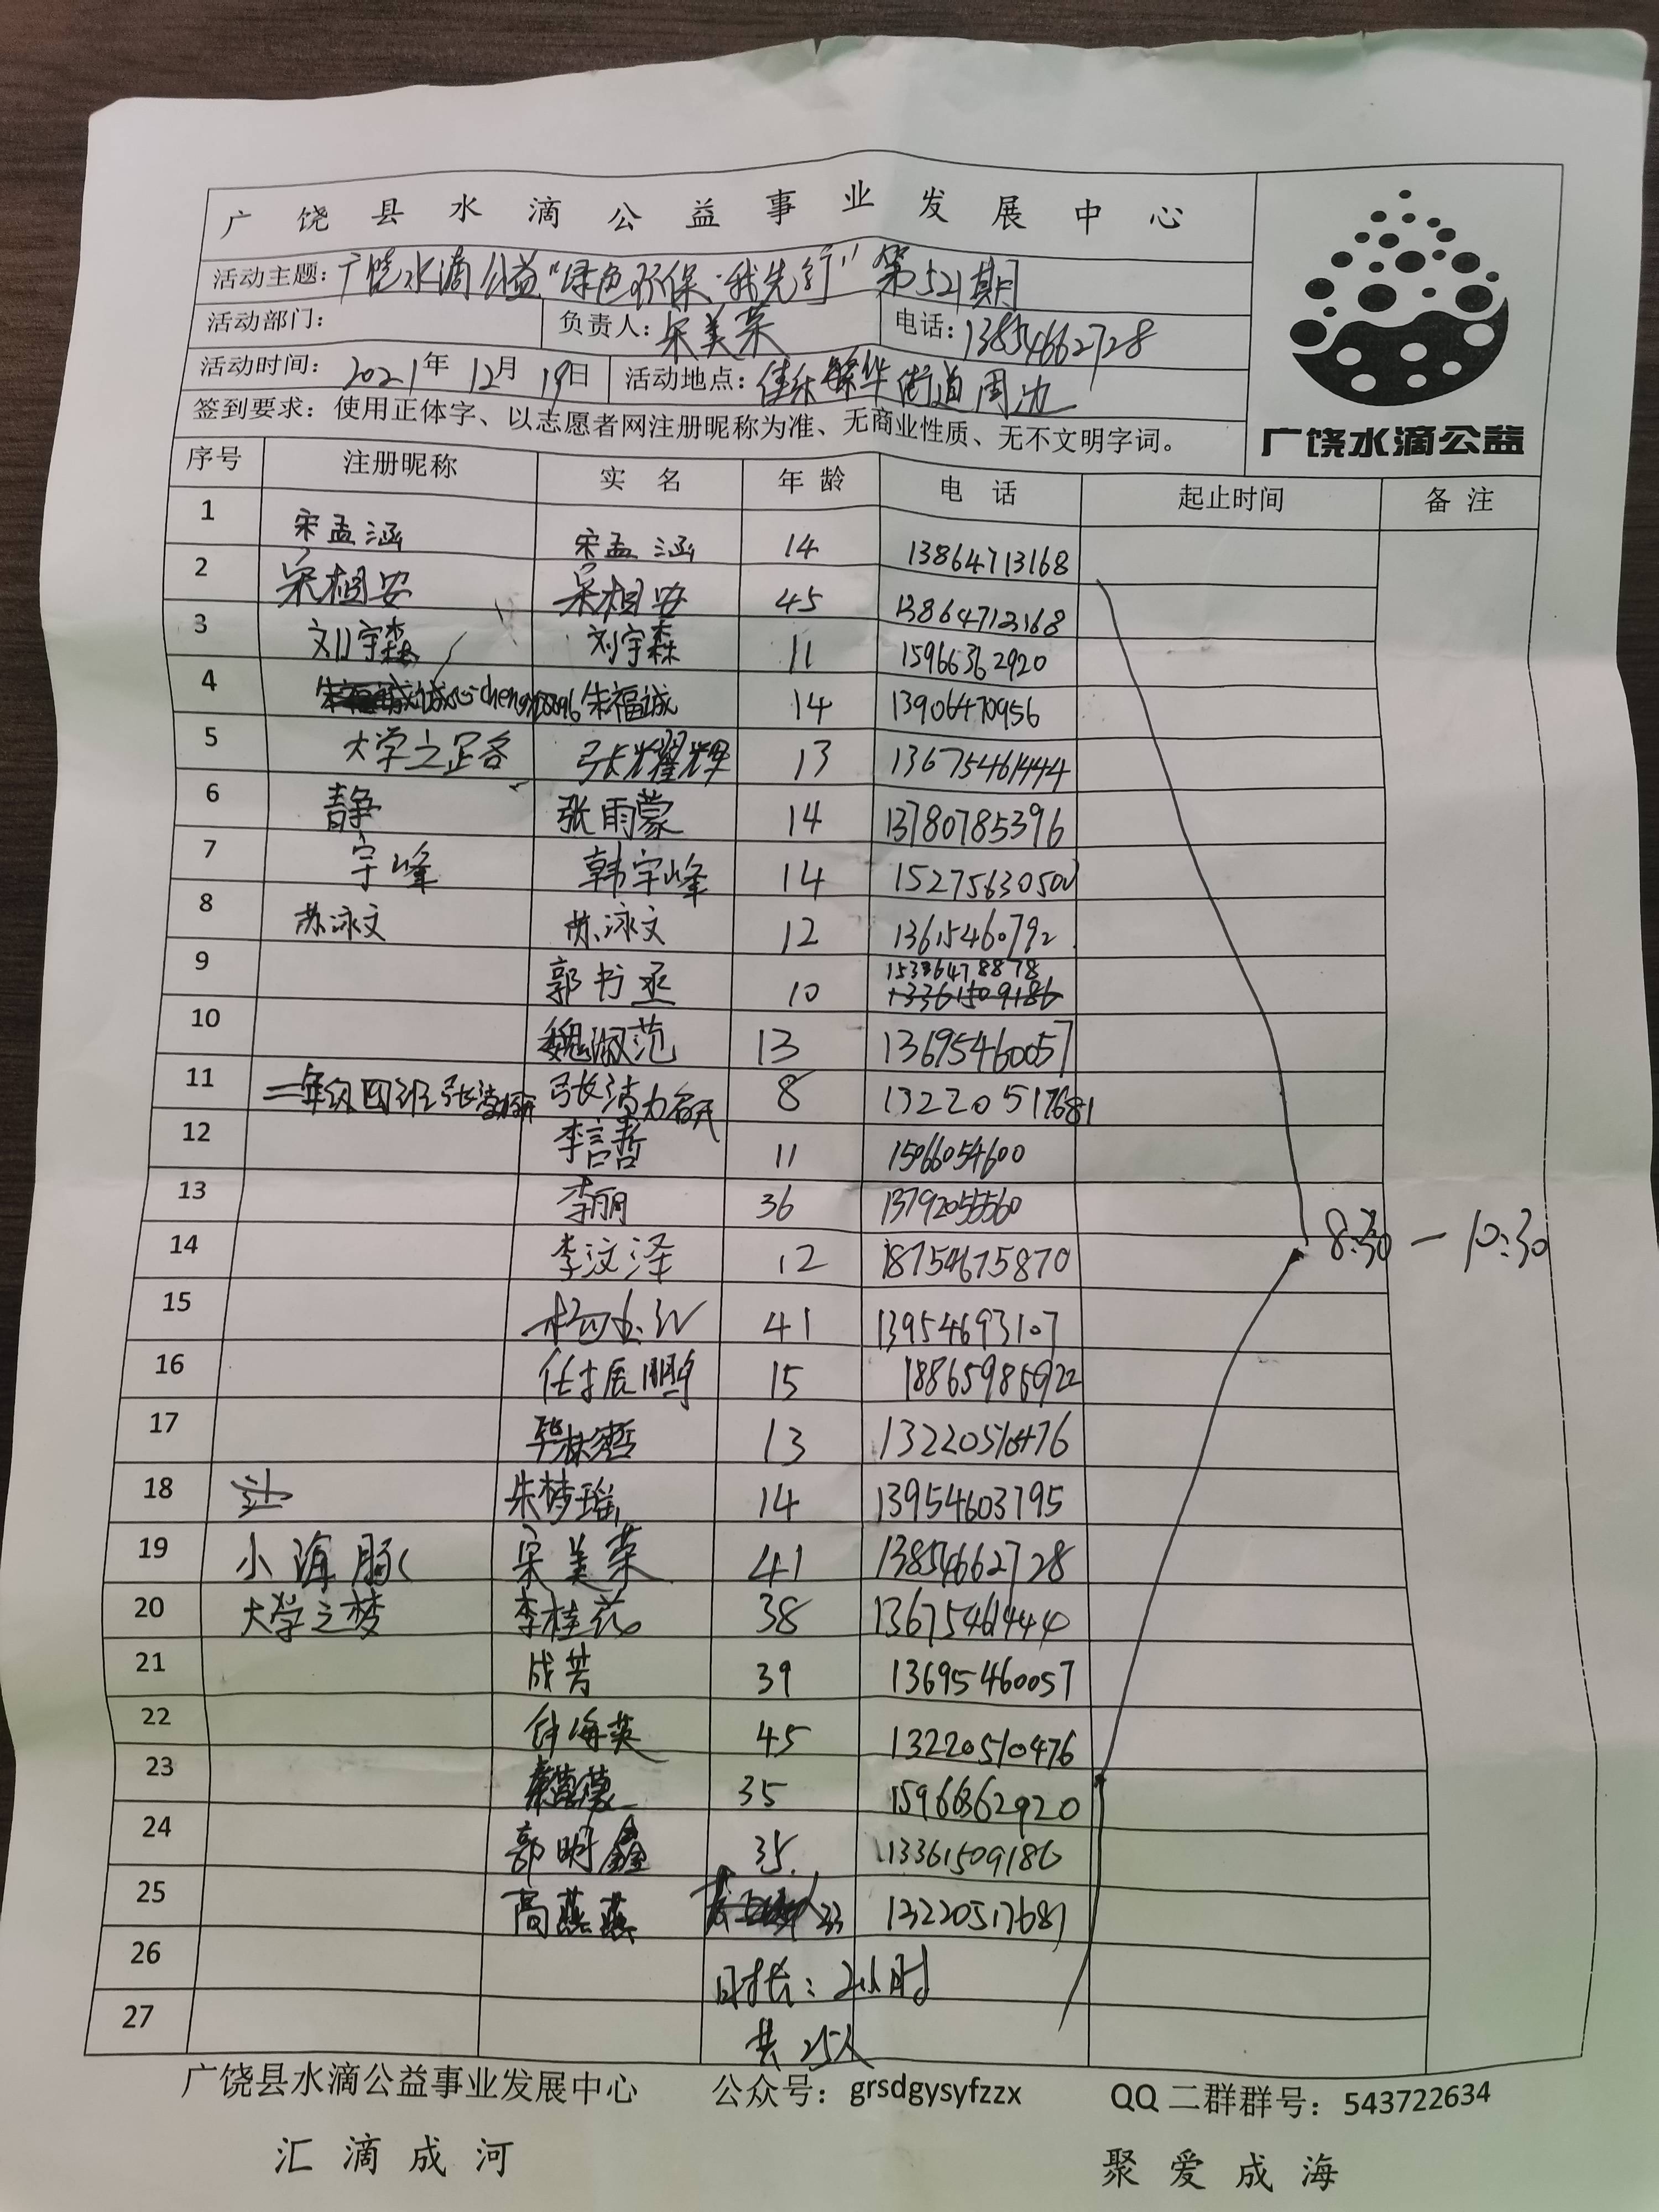 广饶县水滴公益事业发展中心
活动主题：广饶水滴公益“绿色环保·我先行”第521期
活动部门： 负责人：宋美荣 电话：13854662728
活动时间：2021年12月19日 活动地点：佳乐繁华街道周边
签到要求：使用正体字、以志愿者网注册昵称为准、无商业性质、无不文明字词。
广饶水滴公益
序号 注册昵称 实名 年龄 电话 起止时间 备注
1 宋孟涵 宋孟涵 14 13864713168
2 宋相安 宋相安 45 13864713168
3 刘宇森 刘宇森 11 15966362920
4 朱福诚 14 13906470956
5 大学之足各 张耀辉 13 13675461444
6 静 张雨蒙 14 13780785396
7 宇峰 韩宇峰 14
8 苏泳文 苏泳文 12 13615460792
9 郭书丞 10 15386478878
10 魏淑范 13 13695460057
11 二年级四班张 张 8 13220517681
12 李言哲 11 15066054600
13 李丽 36 13792055560
14 李汶泽 12 18754675870
8:30—10:30
15 41 13954693107
16 任振鹏 15 18865985922
17 毕 13 13220510476
18 朱梦瑶 14 13954603795
19 小海豚 宋美荣 41 13854662728
20 大学之梦 李桂花 38 13675461444
21 成芳 39 13695460057
22 仲海英 45 13220510476
23 35 15966362920
24 郭明鑫 35 13361509186
25 高燕燕 33 13220517681
26 时长：2小时
27 共25人
广饶县水滴公益事业发展中心 公众号：grsdgysyfzzx QQ二群群号：543722634
汇滴成河 聚爱成海